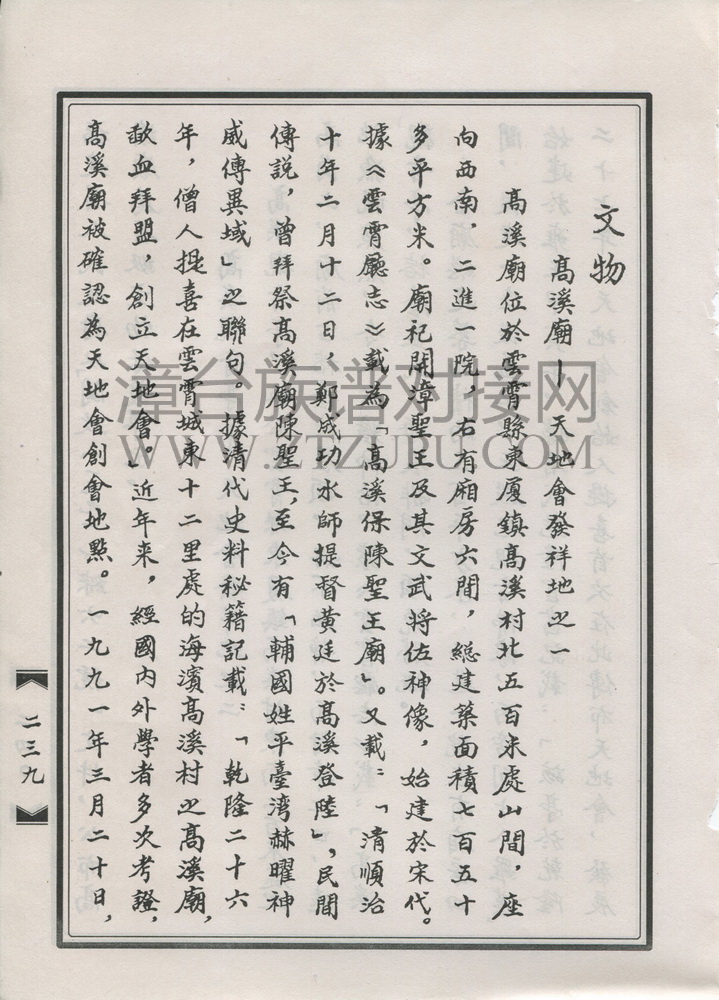 文物
高溪廟—天地會發祥地之一
高溪廟位於雲霄縣東厦鎮高溪村北五百米處山間，座
向西南，二進一院，右有廂房六間，總建築面積七百五十
多平方米。廟祀開漳聖王及其文武將佐神像，始建於宋代。
據《雲霄廳志》載為「高溪保陳聖王廟」。又載：「清順治
十年二月十二日，鄭成功水師提督黄廷於高溪登陸」，民間
傳説，曾拜祭高溪廟陳聖王，至今有「輔國姓平臺湾赫曜神
威傳異域」之聯句。據清代史料秘籍記載：「乾隆二十六
年，僧人提喜在雲霄城東十二里處的海濱高溪村之高溪廟，
歃血拜盟，創立天地會。」近年来，經國内外學者多次考證，
高溪廟被確認為天地會創會地點。一九九一年三月二十日，
二三九
漳台族谱对接网
WWW.ZTZUPU.COM